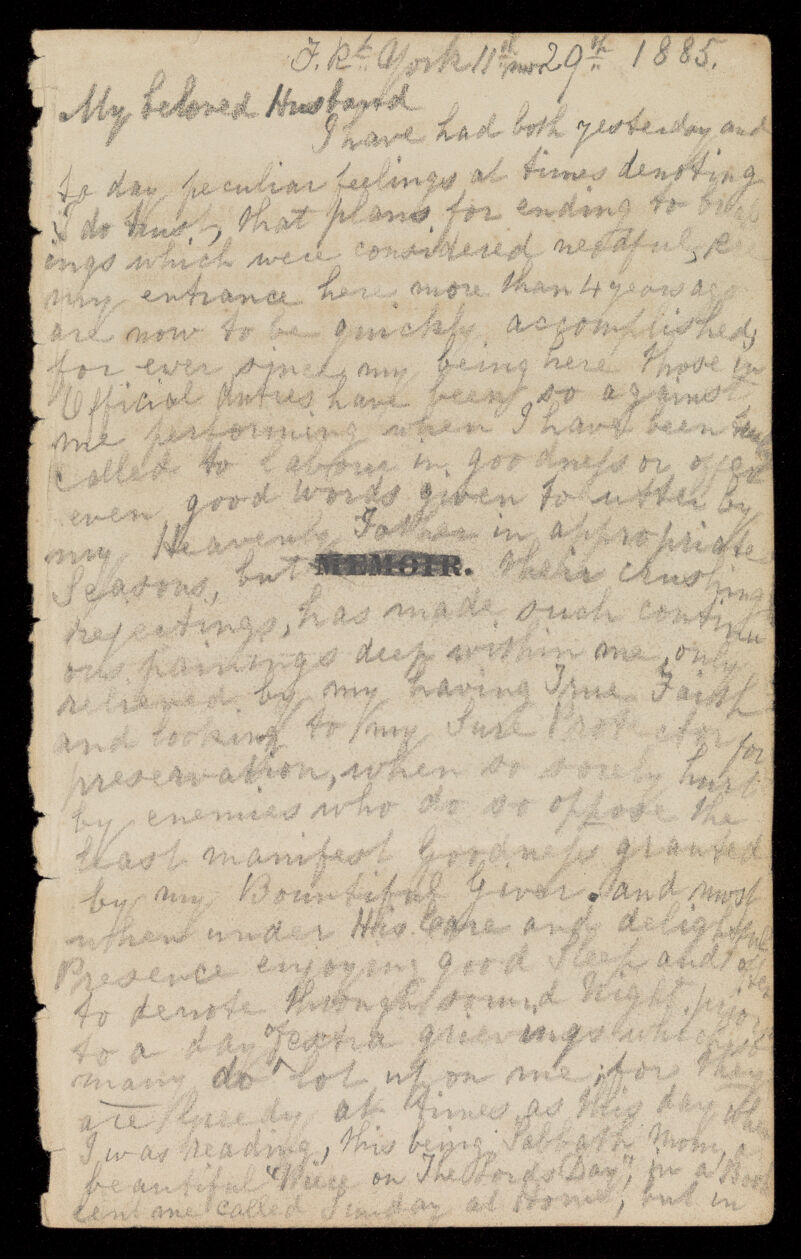 F. Rt. York 11th mo 29th 1885.
My beloved Husband
I have had both yesterday and
to day peculiar feelings at times denoting
I do trust, that plans for ending to
ings which were considered needful,
my entrance here more than 4 years ago
are now to be quickly accomplished,
for ever since my being here those in
Official duties have been so against
me performing when I have been
called to labour in goodness or
even good words given to utter by
my Heavenly Father in appropriate
Seasons, but MEMOIR. their crushing
rejectings, has made such continu
ous painings deep within me, only
relieved by my having True Faith
and looking to my Sure Protector for
preservation, when so sorely hurt
by enemies who do so oppose the
least manifest Goodness granted
by my Bountiful Giver. and most
when under His Care and delightful
Presence enjoying good Sleep and often
to denote through sound Night prior
to a day of extra grievings which so
many do lot upon me, for they
are at times as this day when
I was reading, this being Sabbath Morn, a
beautiful "Piece on The Lords Day", in a Book
lent me called Sunday at Home, but in